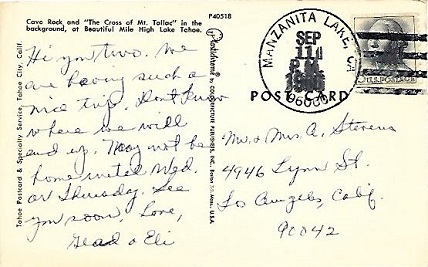 Cave Rock and "The Cross of Mt. Tallac" in the
background, at Beautiful Mile High Lake Tahoe.
P40518
Hi you two. We
are having such a
nice trip. Don't know
where we will
end up. May not be
home until Wed.
or Thursday. See
you soon. Love,
& Eli
Tahoe Postcard & Specialty Service, Tahoe City, Calif.
MANZANITA LAKE, CA
SEP
11
P.M.
96060
POST CARD
Mr & Mrs A. Stevens
4946 Lynn St.
Los Angeles, Calif.
90042